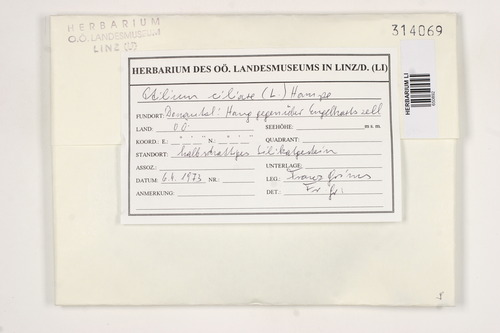 HERBARIUM
O.Ö. LANDESMUSEUM
LINZ (LI)
314069
HERBARIUM DES OÖ. LANDESMUSEUMS IN LINZ/D. (LI)
Ptilium ciliare (L.) Hampe
FUNDORT: Donautal: Hang gegenüber Engelhartszell
LAND: OÖ SEEHÖHE: m s. m.
KOORD.: E.: ° ' " N.: ° ' " QUADRANT:
STANDORT: halbschattiges Silikatgestein
ASSOZ.: UNTERLAGE:
DATUM: 6.4.1973 NR.: LEG.: Franz Grims
ANMERKUNG: DET.: Fr. Gri
HERBARIUM LI